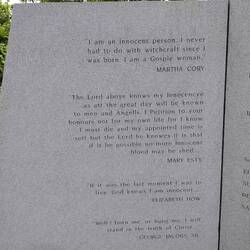 "I am an innocent person. I never
had to do with witchcraft since I
was born. I am a Gosple woman."
MARTHA CORY
The Lord above knows my Innocencye
as att the great day will be known
to men and Angells. I Petition to your
honours not for my own life for I know
I must die and my appointed time is
sett but the Lord he knowes it is that
if it be possible no more innocent
blood may be shed...
MARY ESTY
"If it was the last moment I was to
live, God knows I am innocent...
ELIZABETH HOW
"Well! burn me, or hang me, I will
stand in the truth of Christ...
GEORGE JACOBS, SR.